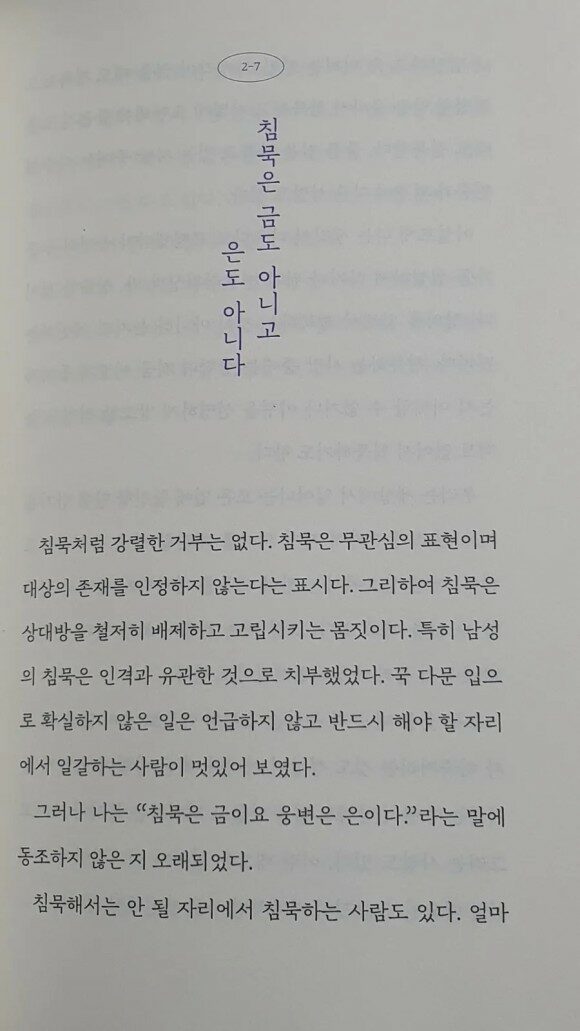 2-7
침묵은 금도 아니고
은도 아니다
침묵처럼 강렬한 거부는 없다. 침묵은 무관심의 표현이며
대상의 존재를 인정하지 않는다는 표시다. 그리하여 침묵은
상대방을 철저히 배제하고 고립시키는 몸짓이다. 특히 남성
의 침묵은 인격과 유관한 것으로 치부했었다. 꾹 다문 입으
로 확실하지 않은 일은 언급하지 않고 반드시 해야 할 자리
에서 일갈하는 사람이 멋있어 보였다.
그러나 나는 “침묵은 금이요 웅변은 은이다.”라는 말에
동조하지 않은 지 오래되었다.
침묵해서는 안 될 자리에서 침묵하는 사람도 있다. 얼마